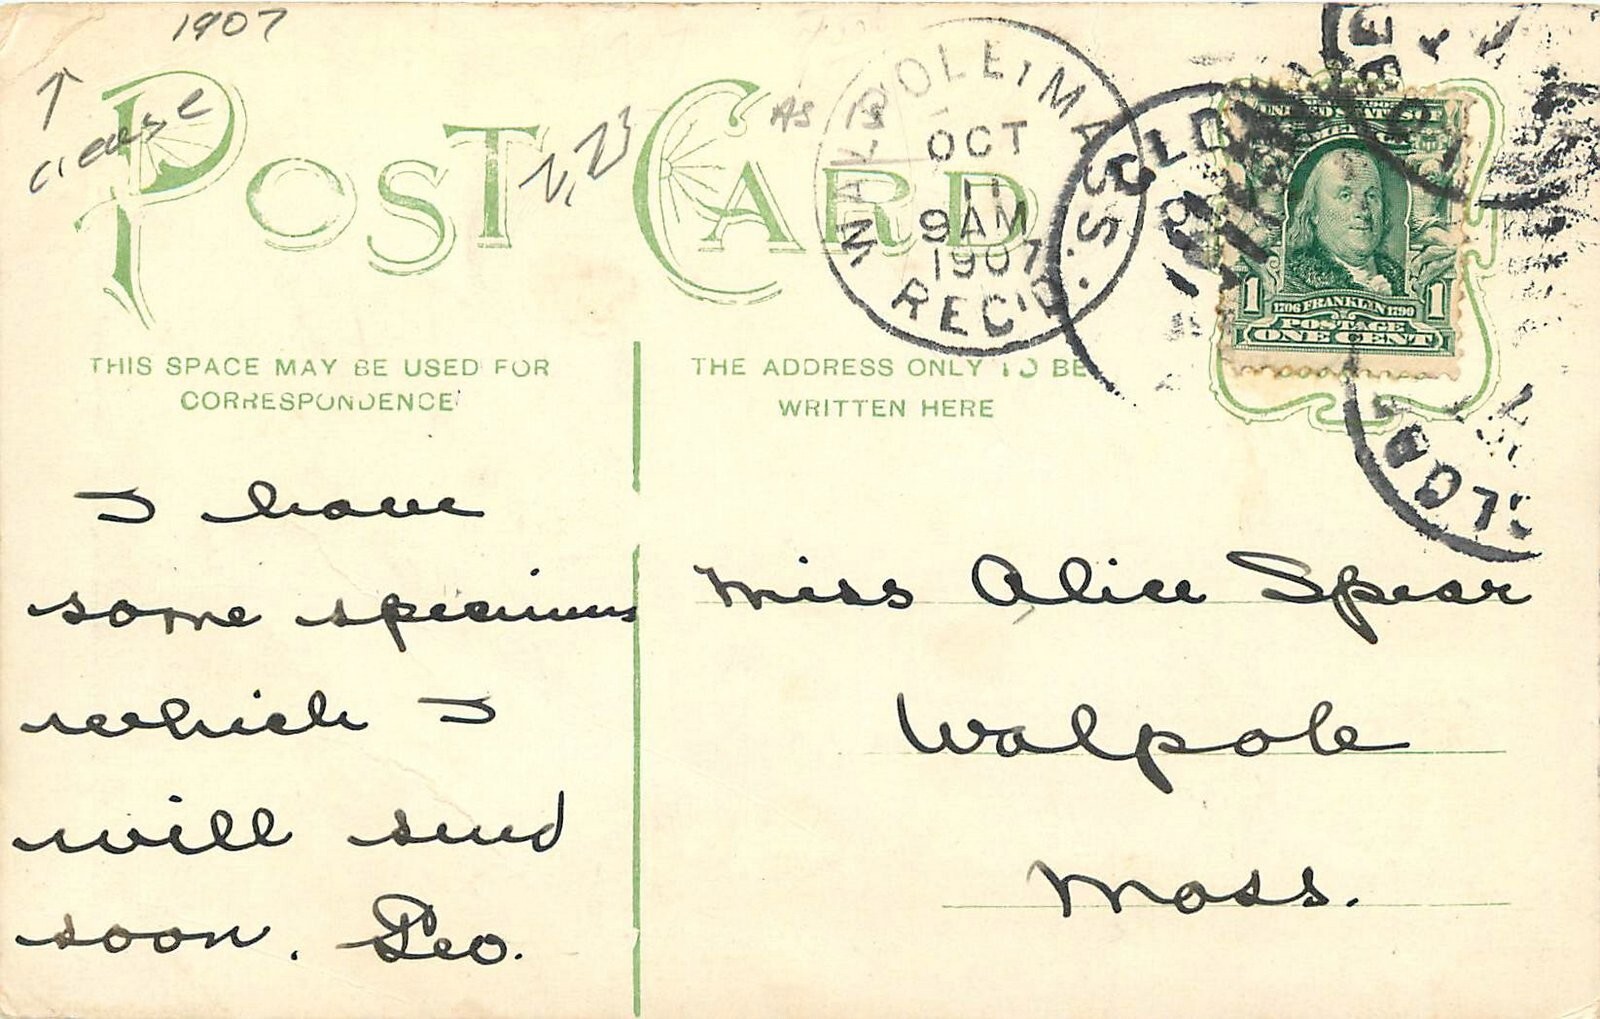 1907
↑
crease
AS IS
POST CARD
WALPOLE, MASS.
OCT
11
9AM
1907
REC'D.
UNITED STATES OF
AMERICA
1706 FRANKLIN 1790
1 POSTAGE 1
ONE CENT
THIS SPACE MAY BE USED FOR
CORRESPONDENCE
THE ADDRESS ONLY TO BE
WRITTEN HERE
I have
some specimens
which I
will send
soon. Geo.
Miss Alice Spear
Walpole
Mass.